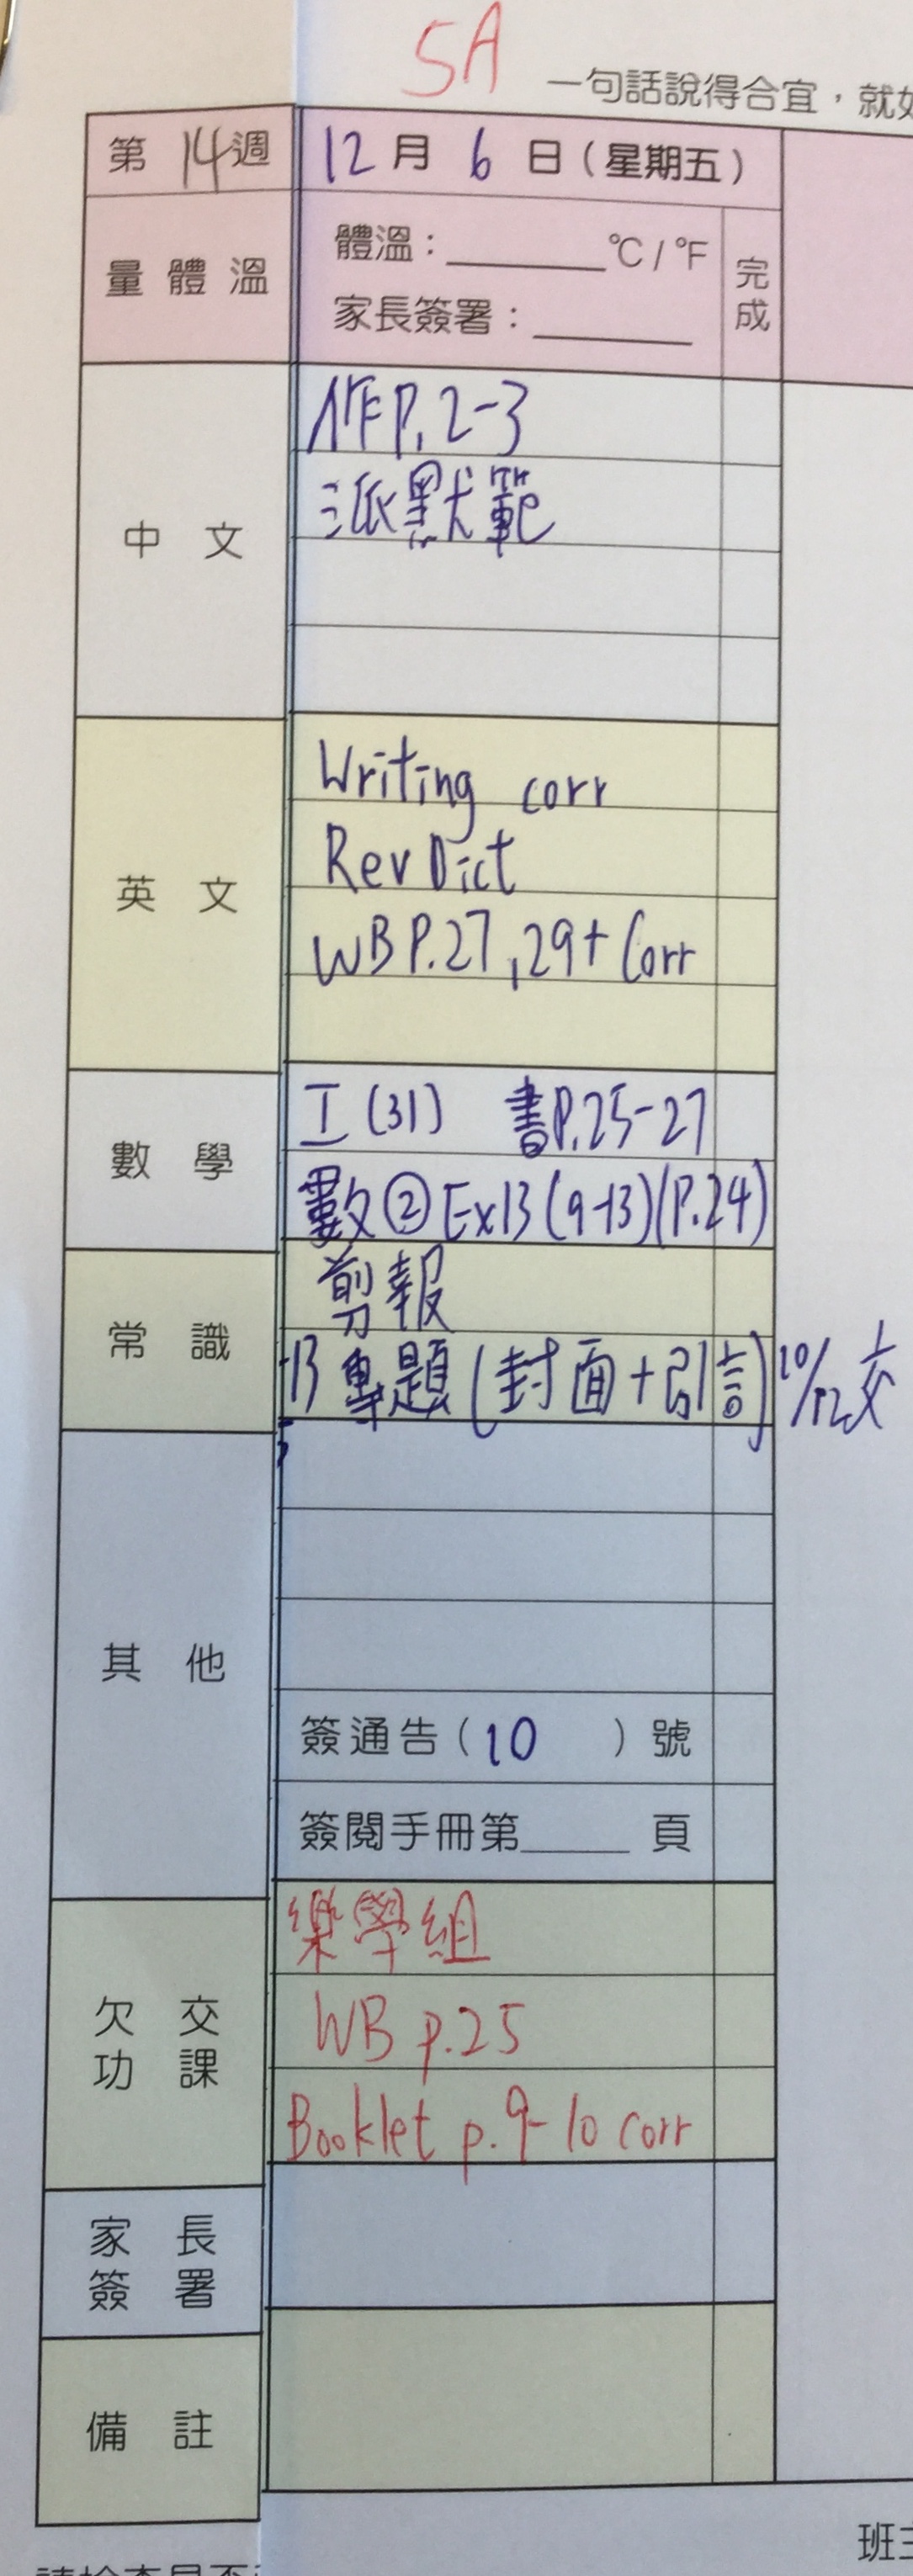 5A
一句話說得合宜，就如
第 14 週 12 月 6 日（星期五）
量體溫 體溫：______ °C / °F 完成
家長簽署：______
中文
作P.2-3
派默範
英文
Writing corr
Rev Dict
WB P.27,29+Corr
數學
工(31) 書P.25-27
數② Ex13(9-13)(P.24)
常識
剪報
專題(封面+引言) 10/12交
其他
簽通告（10 ）號
簽閱手冊第____頁
欠交功課
樂學組
WB p.25
Booklet p.9-10 corr
家長簽署
備註